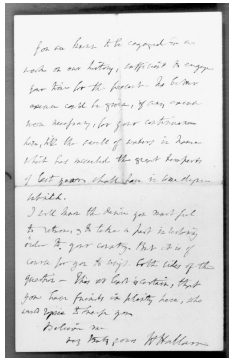 you have to be engaged in a
work on our history, sufficient to engage
your time for the present. No better
reason could be given, if any reason
were necessary, for your continuance
here, till the swell of waters in France
which has succeeded the great
of last year shall have in some degree
subsided.
I will leave the desire you must feel
to return, & to take a part in restoring
order to your country. But it is of
course for you to weigh both sides of the
question - This at least is certain, that
you have friends in plenty here, who
would rejoice to keep you
Believe me
very truly yours